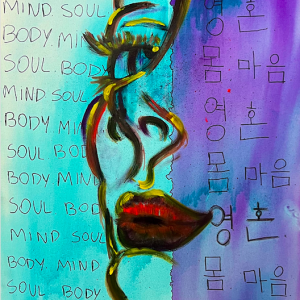 MIND. SOUL
BODY. MIN
SOUL. BODY.
MIND SOUL
BODY. MI
SOUL. BOD
BODY. MIND
SOUL BOD
MIND SOUL
BODY. MIND
SOUL BOD
영 혼
몸 마음
영 혼
몸 마음
영 혼
몸 마음